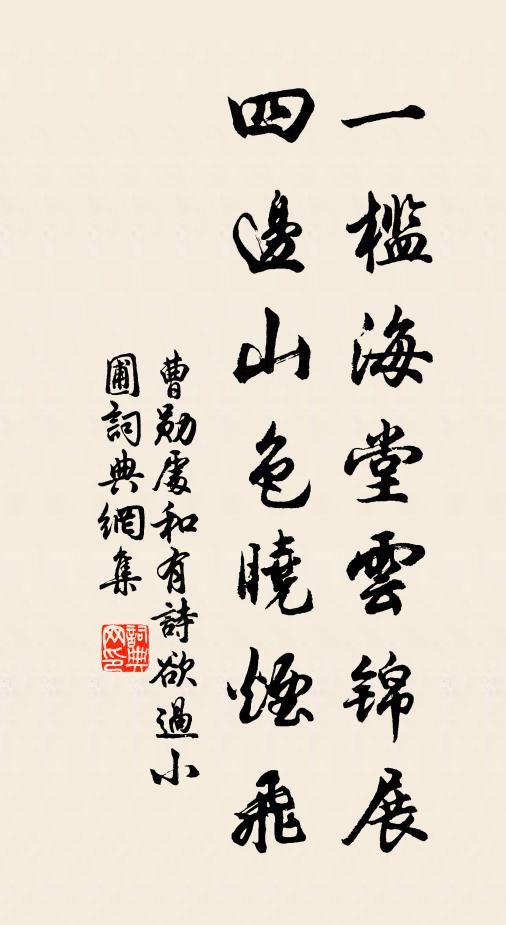 一檻海堂雲錦展
四邊山色曉煙飛
曹勛處和有詩欲過小
圃詞典網集
詞典网印